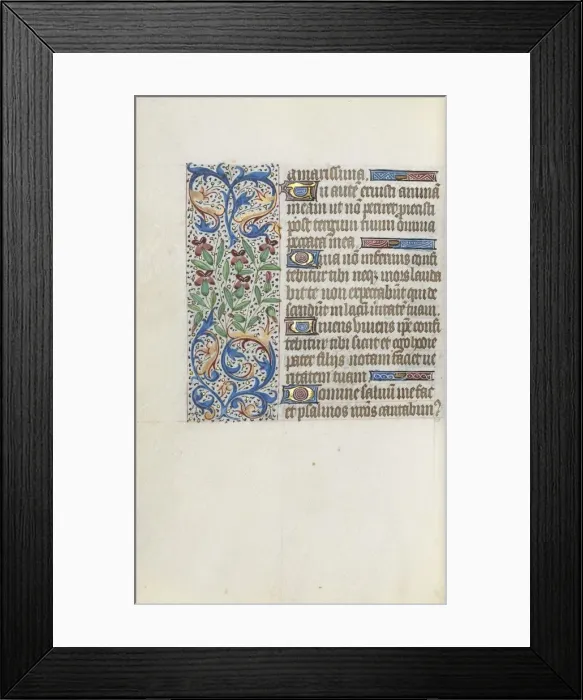 amarissima.
Tu aute͂ eruisti animam
meam ut no͂ periret proiecisti
post tergum tuum omnia
peccata mea.
Quia no͂ infernus confi
tebitur tibi neq; mors lauda
bit te non expectabu͂t qui de
scendu͂t in lacu͂ ueritate͂ tuam.
Viuens viuens ip̃e confi
tebitur tibi sicut et ego hodie
pater filijs notam faciet ue
ritatem tuam.
Domine saluu͂ me fac
et psalmos nr͂os cantabim?